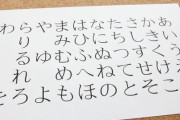 わらやまはなたさかあ
り　みひにちしきい
るゆむふぬつすくう
れ　めへねてせけえ
をろよもほのとそこ